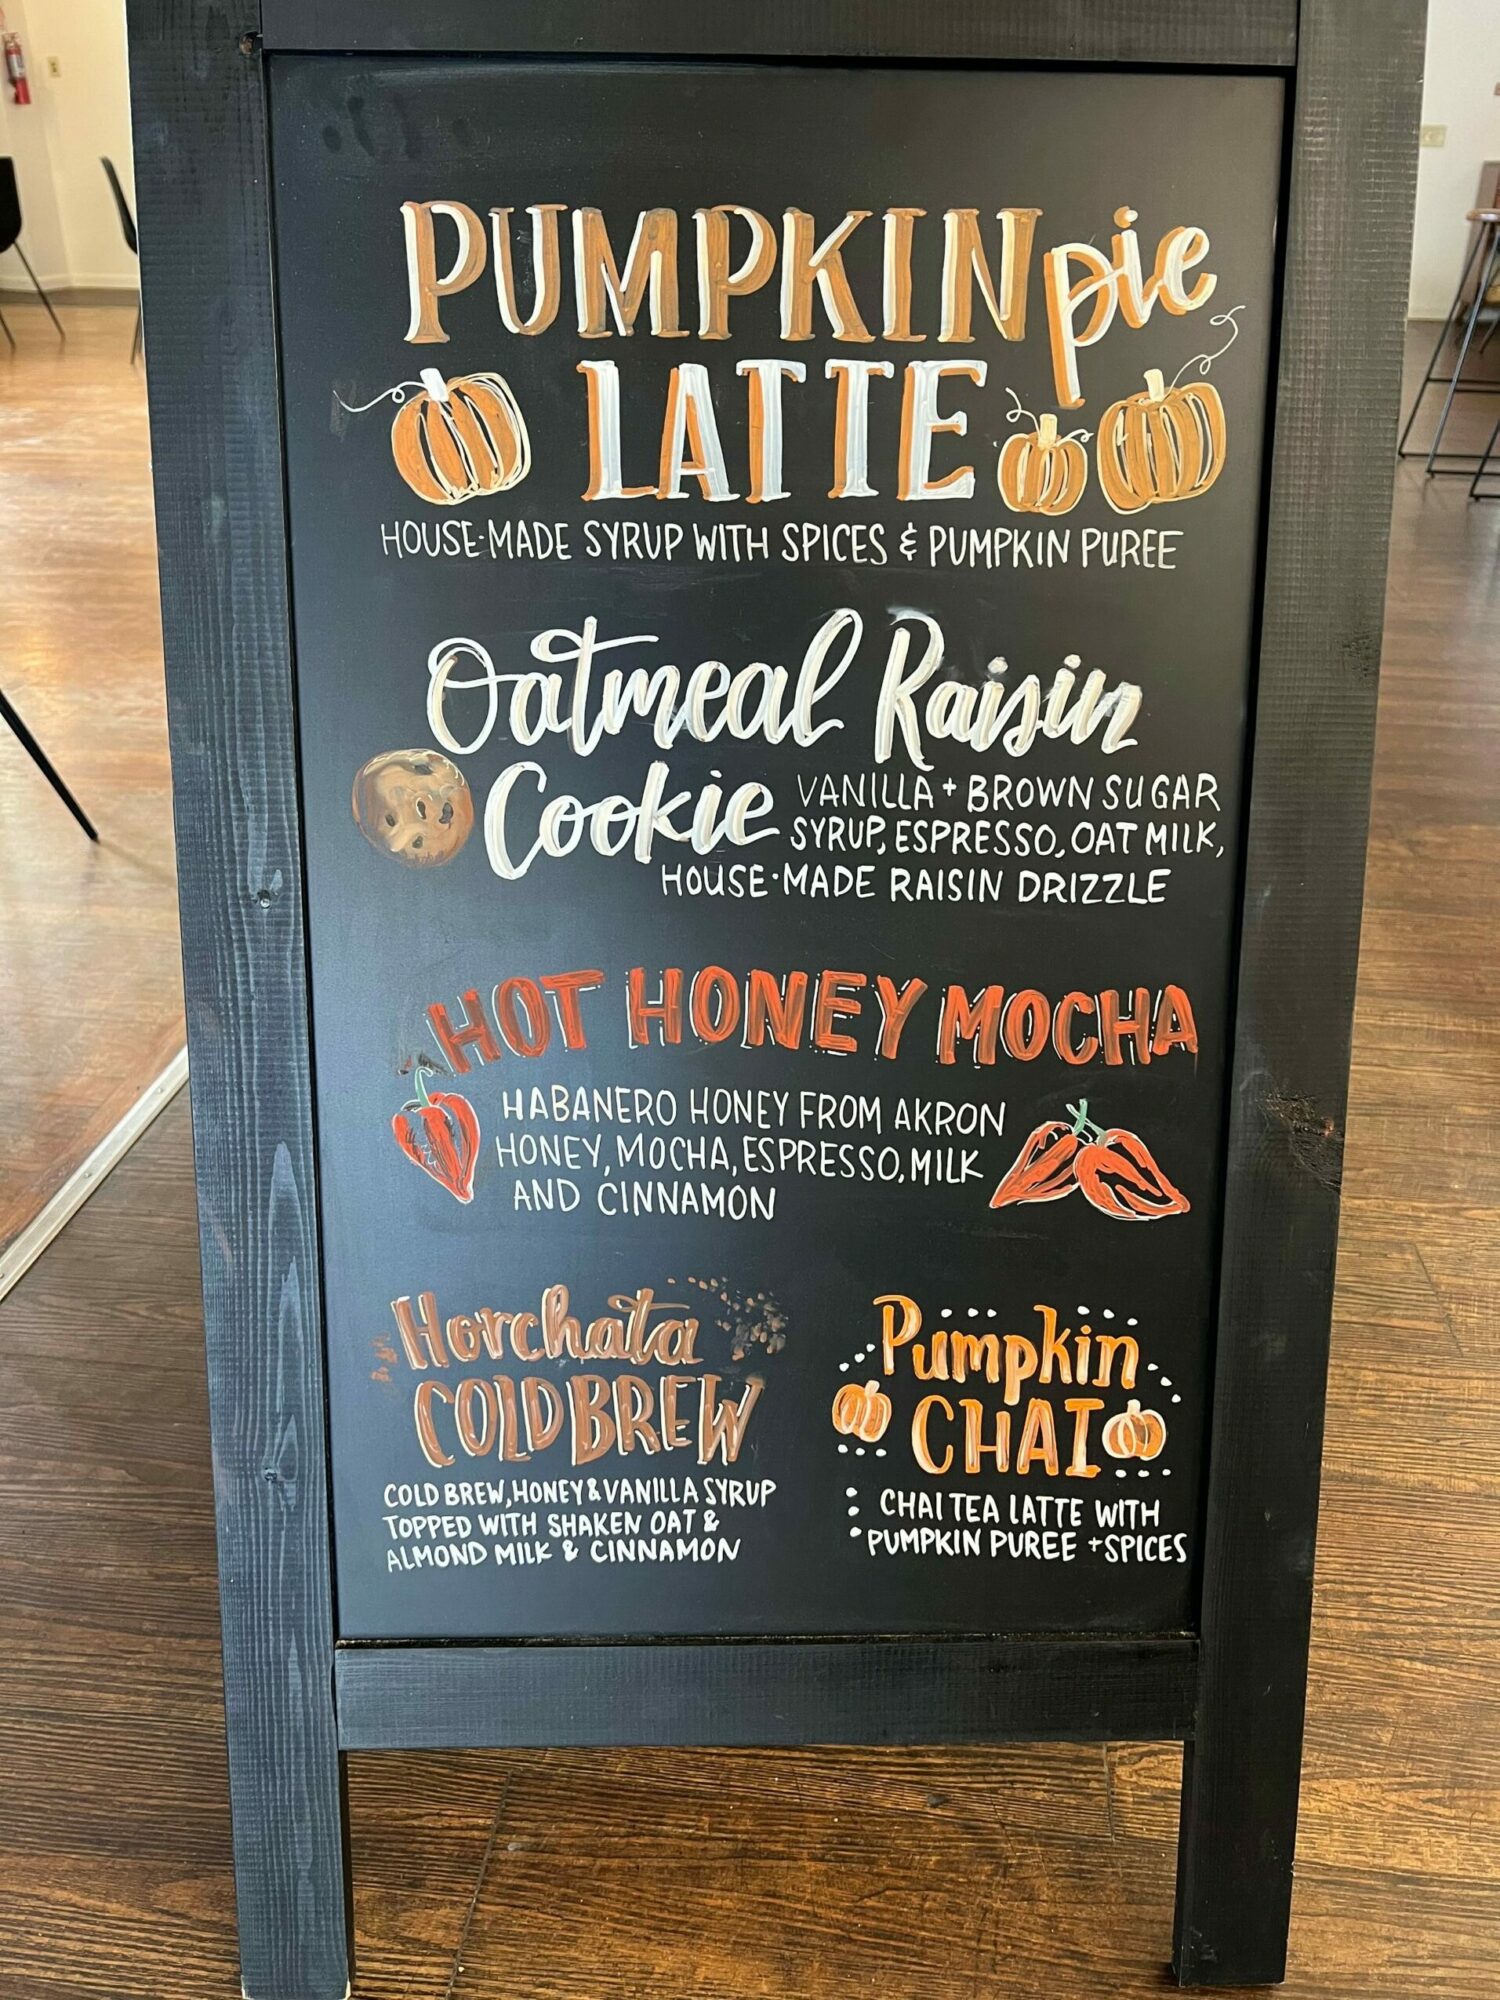 PUMPKIN pie
LATTE
HOUSE-MADE SYRUP WITH SPICES & PUMPKIN PUREE
Oatmeal Raisin
Cookie
VANILLA + BROWN SUGAR
SYRUP, ESPRESSO, OAT MILK,
HOUSE-MADE RAISIN DRIZZLE
HOT HONEY MOCHA
HABANERO HONEY FROM AKRON
HONEY, MOCHA, ESPRESSO, MILK
AND CINNAMON
Horchata
COLD BREW
COLD BREW, HONEY & VANILLA SYRUP
TOPPED WITH SHAKEN OAT &
ALMOND MILK & CINNAMON
Pumpkin
CHAI
CHAI TEA LATTE WITH
PUMPKIN PUREE + SPICES